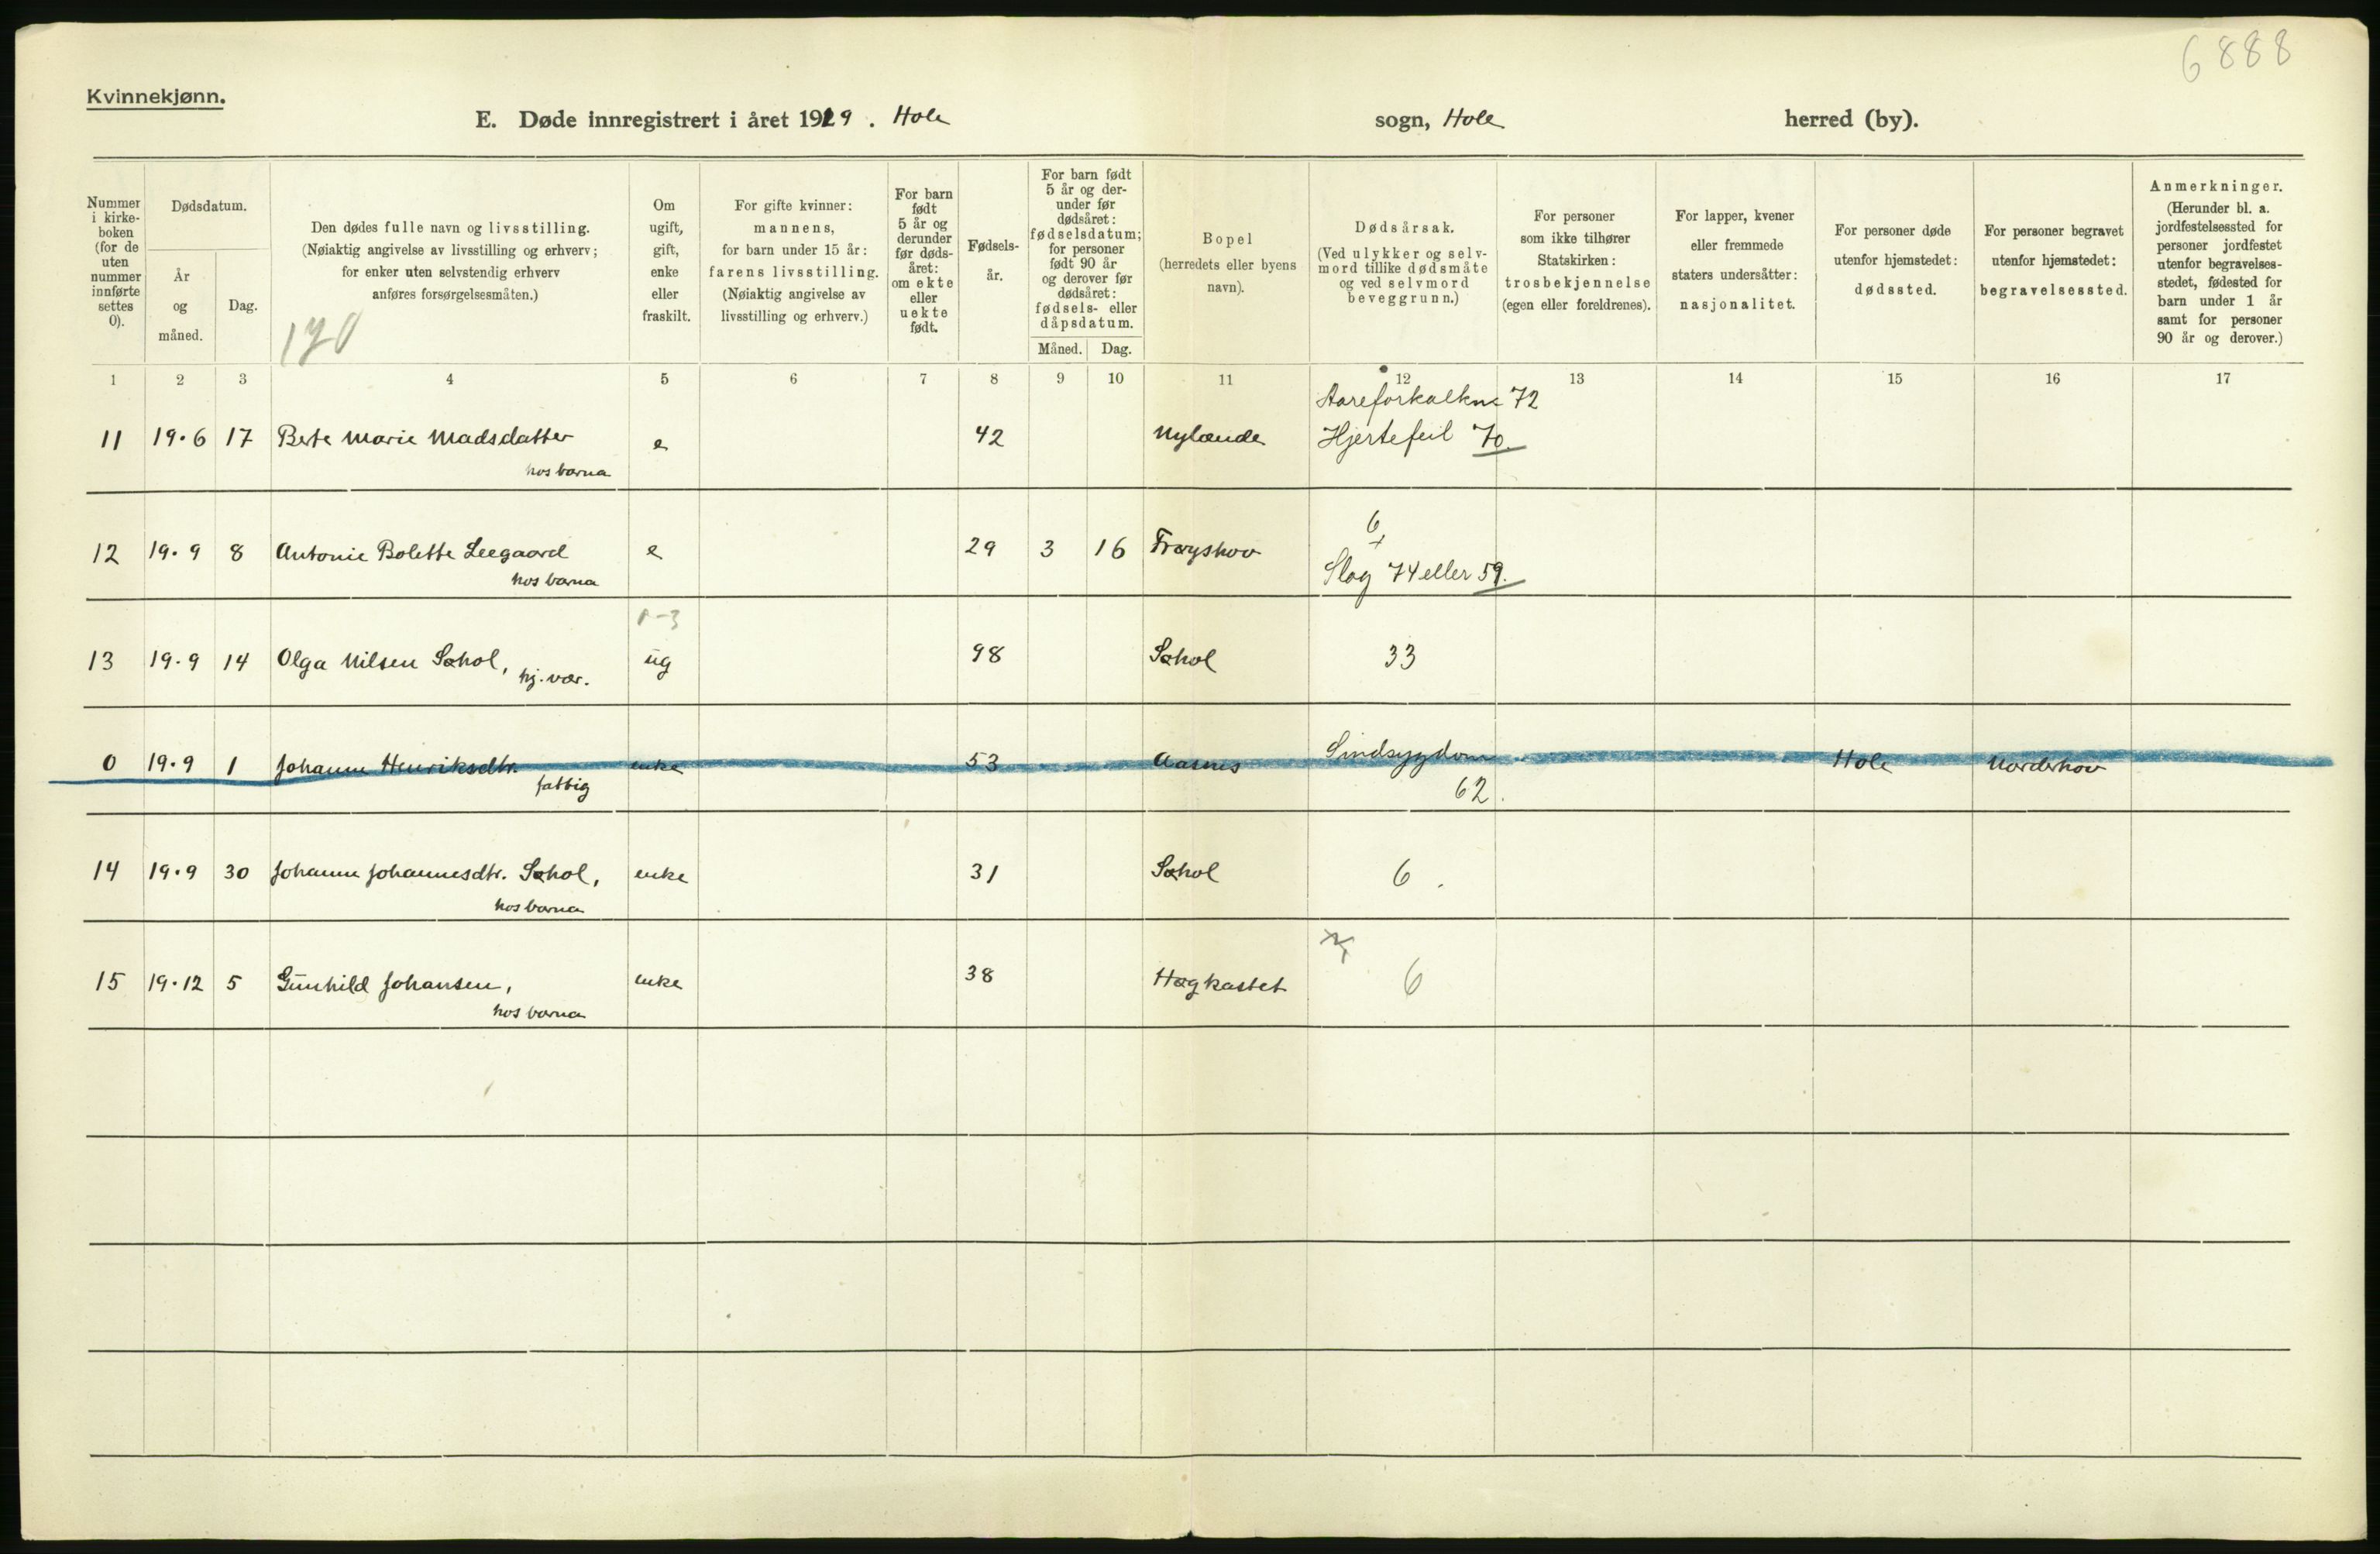 6888
Kvinnekjønn.
E. Døde innregistrert i året 1919. Hole sogn, Hole herred (by).
Nummer i kirkeboken (for de uten nummer innførte settes 0).
Dødsdatum.
År og måned.
Dag.
Den dødes fulle navn og livsstilling.
(Nøiaktig angivelse av livsstilling og erhverv;
for enker uten selvstendig erhverv
anføres forsørgelsesmåten.)
170
Om ugift, gift, enke eller fraskilt.
For gifte kvinner:
mannens,
for barn under 15 år:
farens livsstilling.
(Nøiaktig angivelse av
livsstilling og erhverv.)
For barn født 5 år og derunder før dødsåret: om ekte eller uekte født.
Fødselsår.
For barn født 5 år og derunder før dødsåret: fødselsdatum; for personer født 90 år og derover før dødsåret: fødsels- eller dåpsdatum.
Måned. Dag.
Bopel
(herredets eller byens
navn).
Dødsårsak.
(Ved ulykker og selvmord tillike dødsmåte og ved selvmord beveggrunn.)
For personer
som ikke tilhører
Statskirken:
trosbekjennelse
(egen eller foreldrenes).
For lapper, kvener
eller fremmede
staters undersåtter:
nasjonalitet.
For personer døde
utenfor hjemstedet:
dødssted.
For personer begravet
utenfor hjemstedet:
begravelsessted.
Anmerkninger.
(Herunder bl. a. jordfestelsessted for personer jordfestet utenfor begravelsesstedet, fødested for barn under 1 år samt for personer 90 år og derover.)
1 2 3 4 5 6 7 8 9 10 11 12 13 14 15 16 17
Aareforkalkn 72
11 19.6 17 Berte Marie Madsdatter e 42 Nylænde Hjertefeil 70
hos barna
6
12 19.9 8 Antonie Bolette Leegaard e 29 3 16 Frøyshov
hos barna Slag 74 eller 59.
13 19.9 14 Olga Nilsen Søhol, hj. vær. ug 98 Søhol 33
0 19.9 1 Johanne Henriksdtr. enke 53 Aasnes Sindsygdom Hole Norderhov
fattig 62.
14 19.9 30 Johanne Johannesdtr. Søhol, enke 31 Søhol 6.
hos barna
15 19.12 5 Gunhild Johansen, enke 38 Høgkastet 6
hos barna